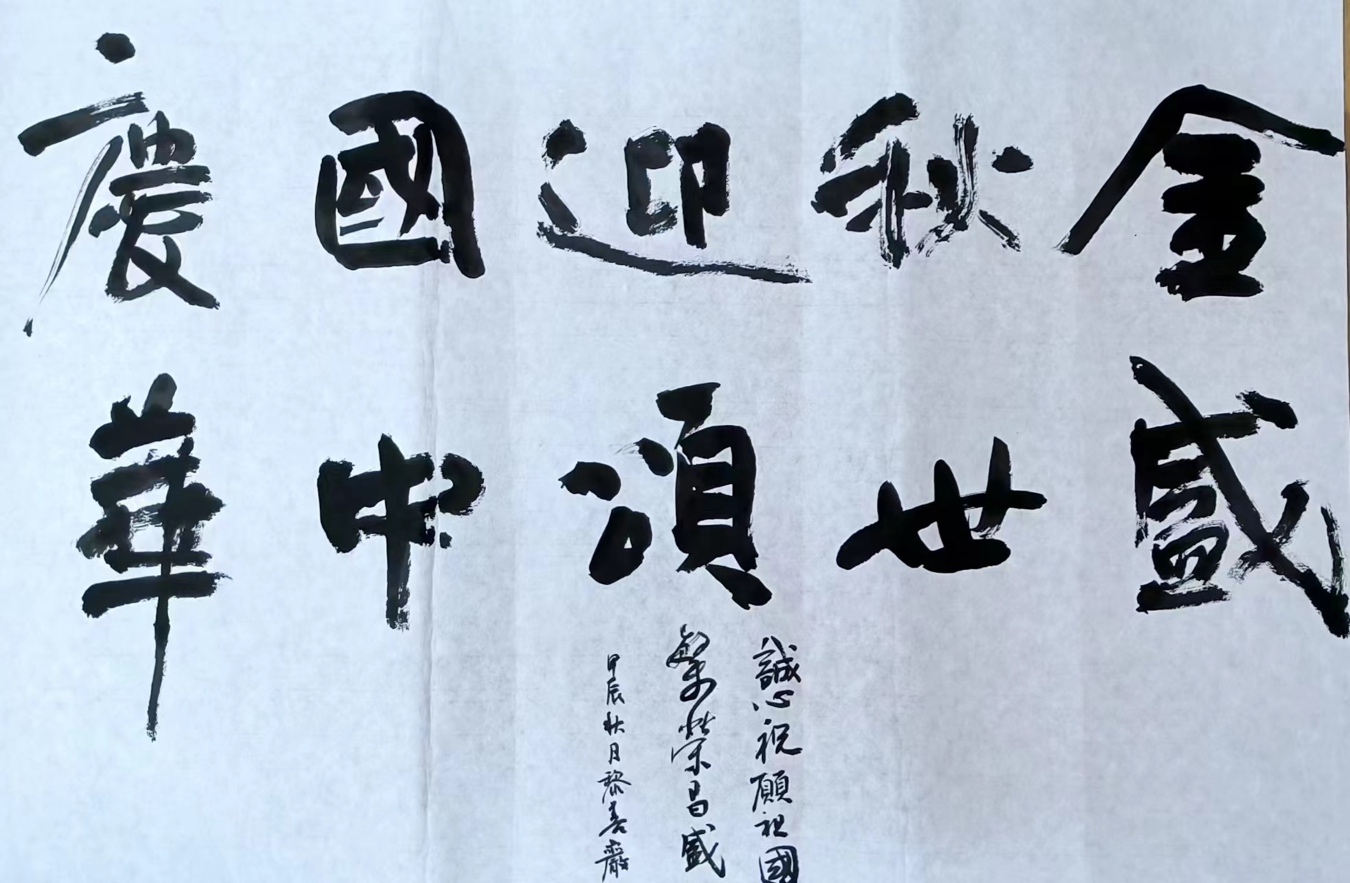 金秋迎國慶
盛世頌中華
誠心祝願祖國
繁榮昌盛
甲辰秋月黎善